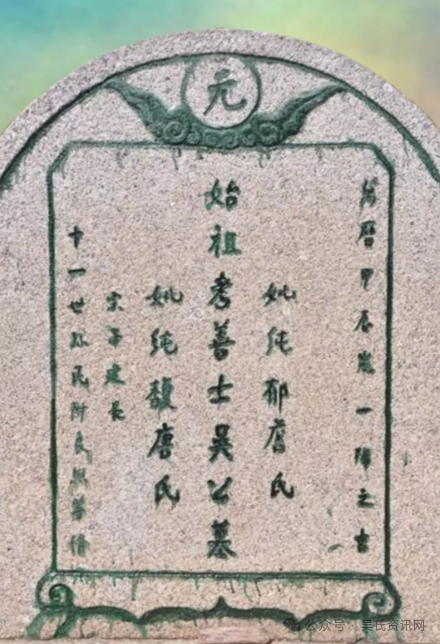 元
萬曆甲辰歲一陽之吉
妣纯郁氏
始祖考善士吴公墓
妣纯馥唐氏
宗子建長
十一世孙民附民熙等脩
公众号 · 吴氏资讯网